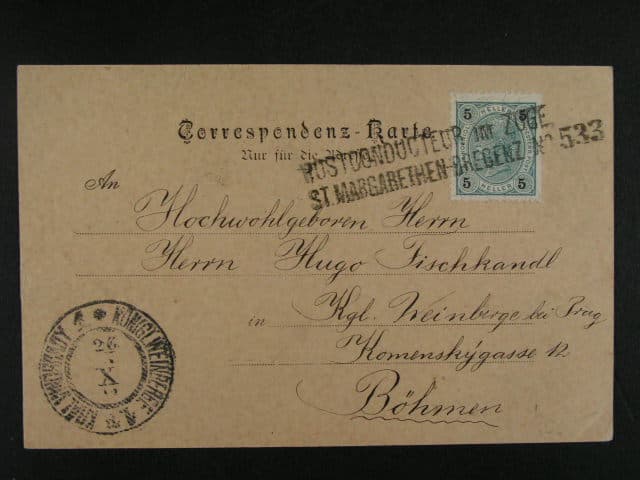 Correspondenz-Karte
Nur für die Adresse
5 HELLER 5
POSTCONDUCTEUR IM ZUGE
ST. MARGARETHEN-BREGENZ No 533
5 HELLER 5
An
Hochwohlgeboren Herrn
Herrn Hugo Fischkandl
in Kgl. Weinberge bei Prag
Komenskýgasse 12
Böhmen
KÖNIGL. WEINBERGE 1
KRÁL. VINOHRADY 1